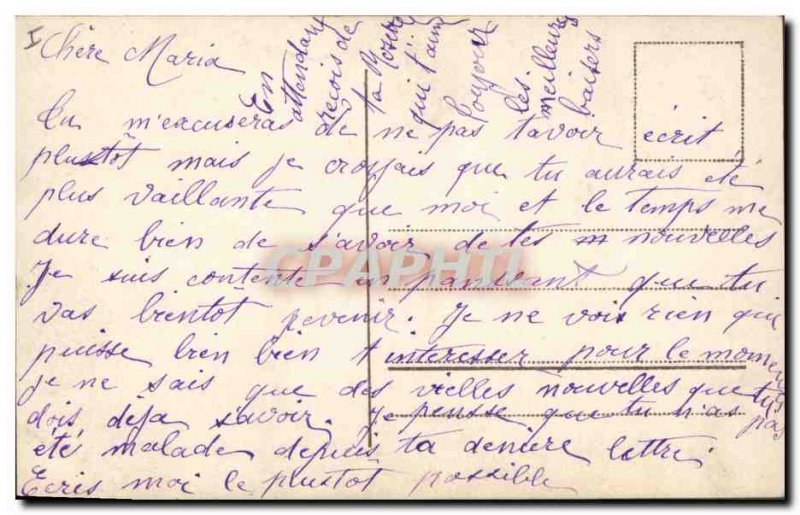 Chère Maria
Tu m'excuseras de ne pas t'avoir écrit
plustôt mais je croyais que tu aurais été
plus vaillante que moi et le temps me
dure bien de s'avoir de tes m nouvelles
Je suis contente en panssant que tu
vas bientot revenir. Je ne vois rien qui
puisse bien bien t interesser pour le moment
je ne sais que des vielles nouvelles que tu
dois deja savoir. Je pensse que tu n'as pas
été malade depuis ta deniere lettre.
Ecris moi le plustot possible
En
attendant
reçois de
ta
qui t'aime
toujour
les
meilleurs
baisers
CPAPHIL
I